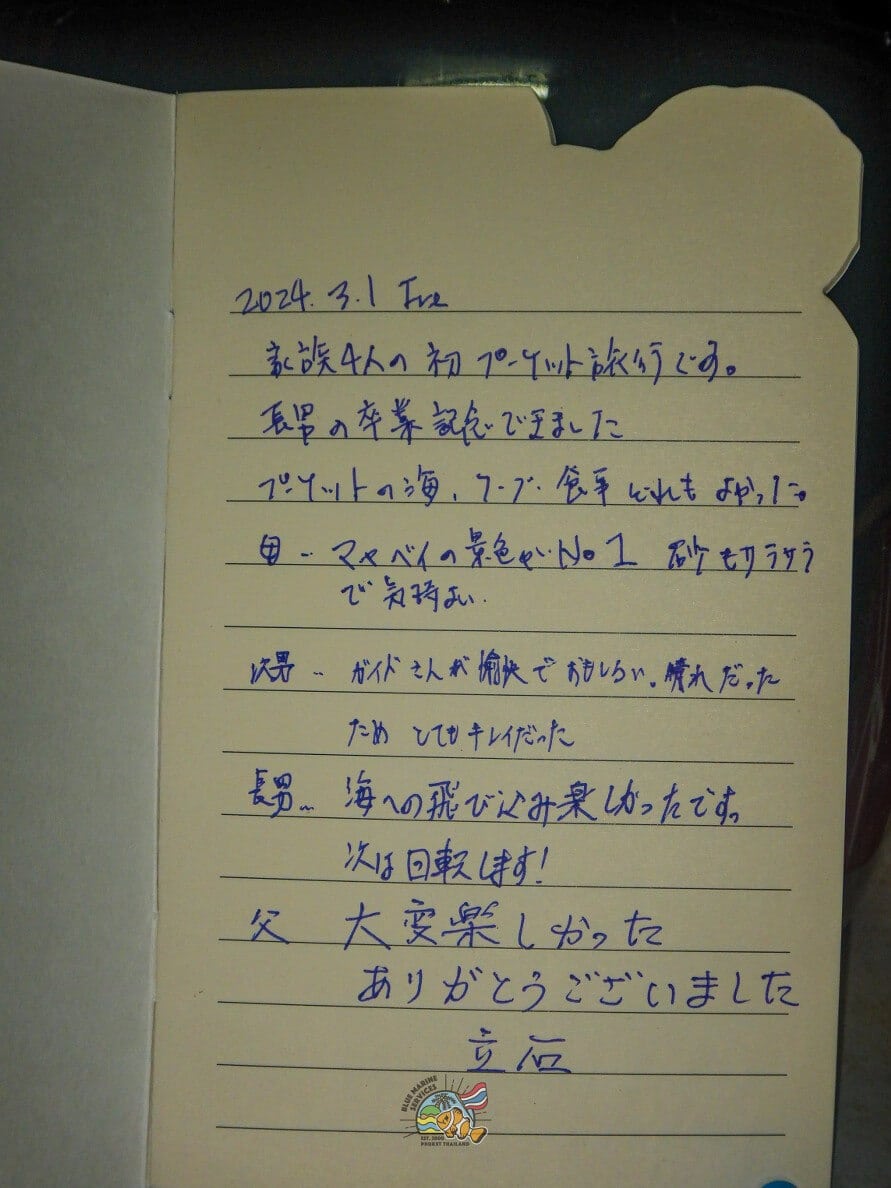 2024.3.1 Tue
家族4人の初プーケット旅行です。
長男の卒業記念で来ました
プーケットの海、ケーブ、食事どれもよかった。
母… マヤベイの景色がNo1 砂もサラサラ
で気持よい.
次男… ガイドさんが愉快でおもしろい。晴れだった
ため とてもキレイだった
長男… 海への飛び込み楽しかったです。
次は回転します！
父 大変楽しかった
ありがとうございました
立石
BLUE MARINE SERVICES
EST. 2000
PHUKET THAILAND